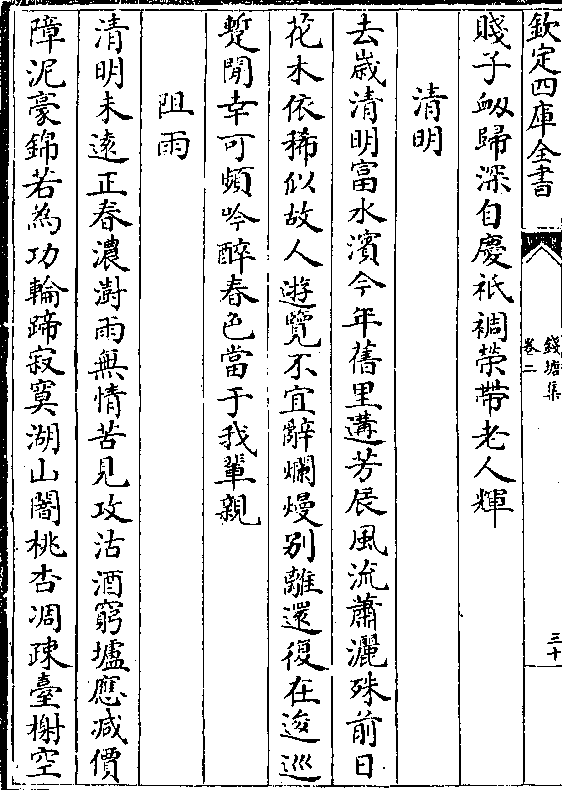 欽定四庫全書
錢塘集
卷二
三十
賤子畝歸深自慶祇禂榮帶老人輝
清明
去歲清明富水濱今年舊里遘芳辰風流蕭灑殊前日
花木依稀似故人遊覽不宜辭爛熳別離還復在逡巡
蹔閒幸可頻吟醉春色當于我輩親
阻雨
清明未遠正春濃澍雨無情苦見攻沽酒窮壚應减價
障泥豪錦若為功輪蹄寂寞湖山闇桃杏凋疎臺榭空